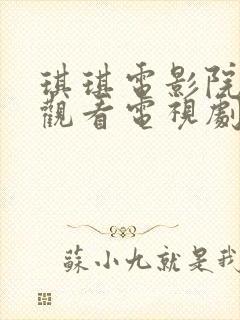 琪琪電影院
觀看電視劇
蘇小九就是我